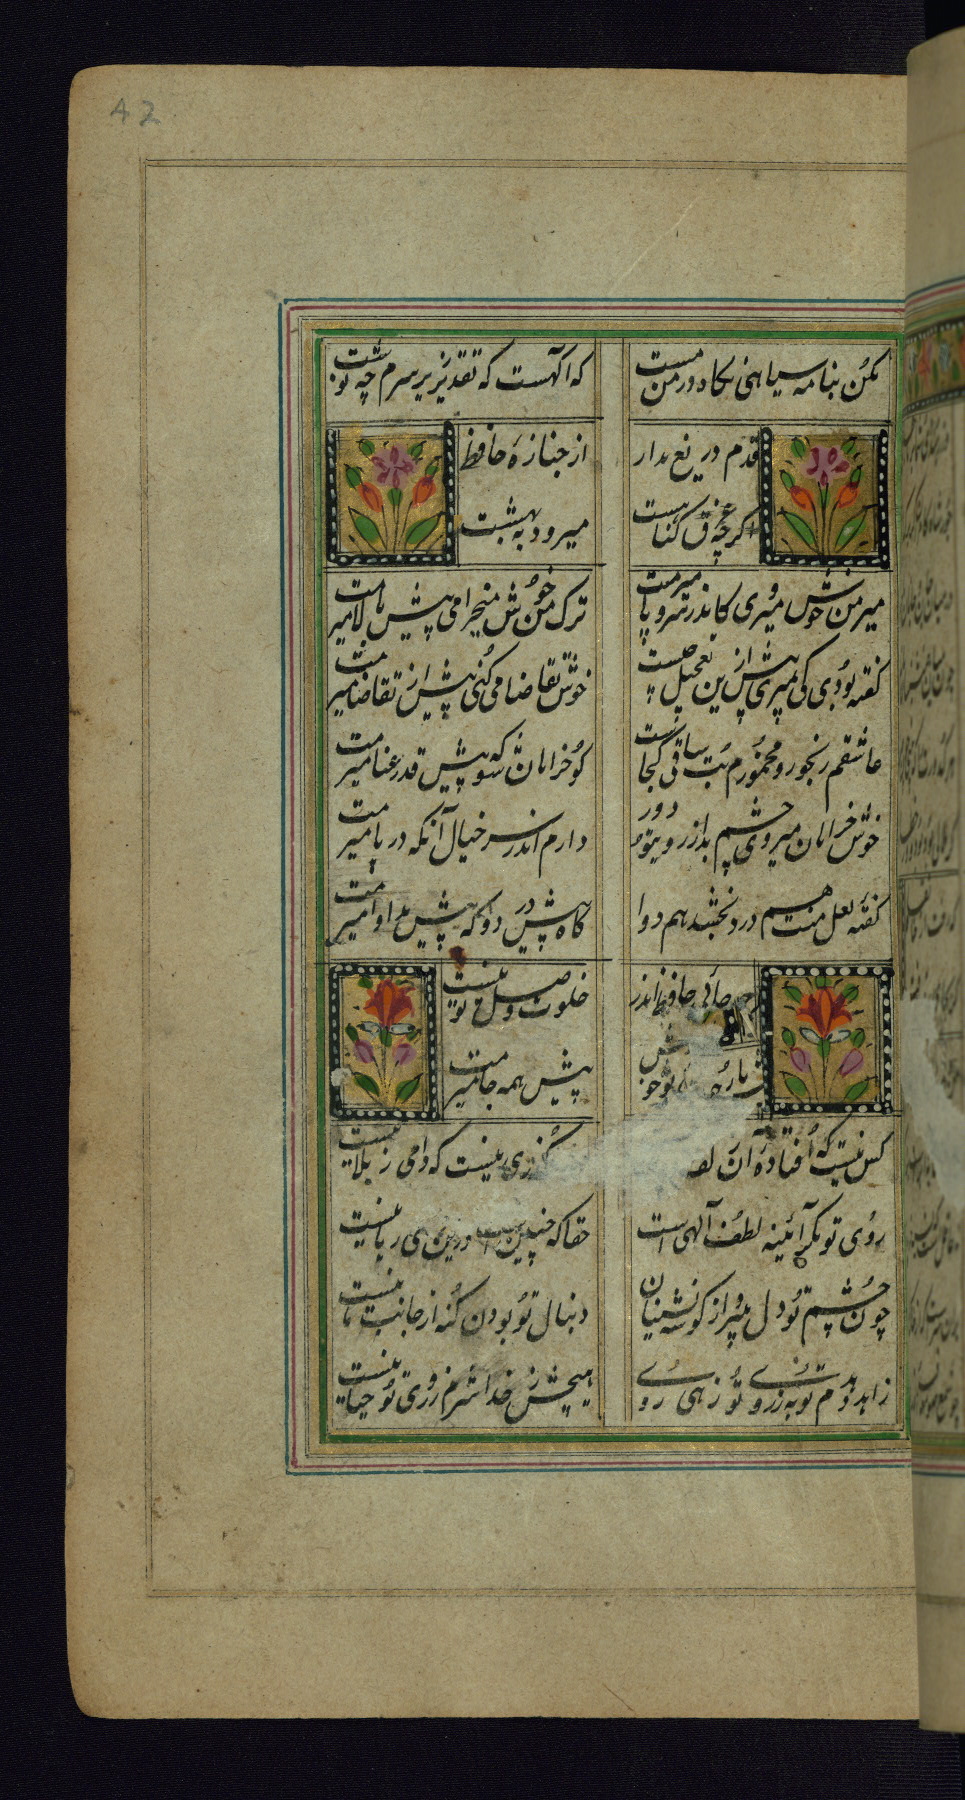 42
مکن بنامه سیاهی نگاه در من مست
که آگهست که تقدیر بر سرم چه نوشت
قدم دریغ مدار
از جنازه حافظ
اگرچه غرق گناهست
میرود به بهشت
میر من خوش میروی کاندر سرو پا میرمت
ترک من خوش میخرامی پیش بالا میرمت
گفته بودی کی میری پیش ازین تعجیل چیست
خوش تقاضا می کنی پیش از تقاضا میرمت
عاشقم رنجور و مخمورم بت ساقی کجاست
کو خرامان شو که پیش قد رعنا میرمت
خوش خرامان میروی چشم بد از روی تو دور
دارم اندر سر خیال آنکه در پا میرمت
گفته لعل منت هم درد بخشد هم دوا
گاه پیش درد و گه پیش مداوا میرمت
جای حافظ اندر
خلوت وصل تو نیست
پیش همه جا میرمت
کس نیست که افتاده آن
گذری نیست که دامی ز بلا نیست
روی تو مگر آئینه لطف آلهی است
حقا که چنین است و درین روی و ریا نیست
چون چشم تو دل میبرد از گوشه نشینان
دنبال تو بودن گنه از جانب ما نیست
زاهد دهدم توبه ز روی تو زهی روی
هیچش ز خدا شرم ز روی تو حیا نیست